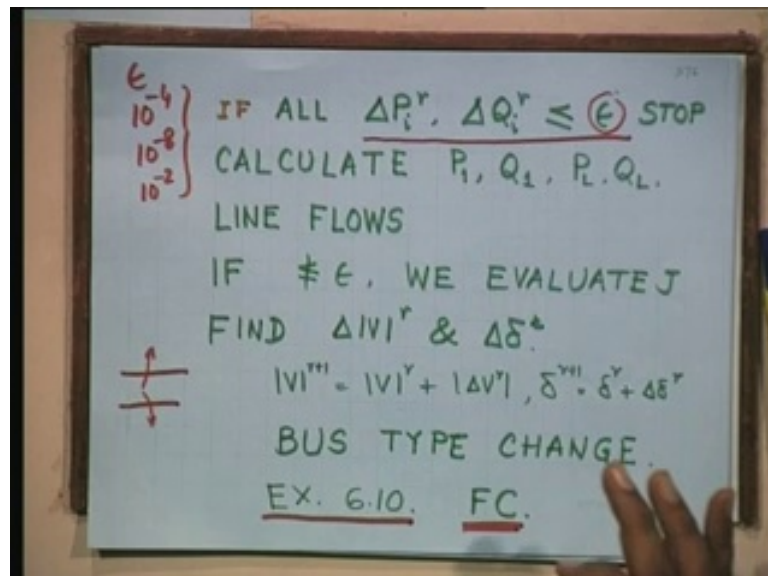 ϵ
10⁻⁴
10⁻⁸
10⁻²
IF ALL ΔPᵢʳ, ΔQᵢʳ ≤ ϵ STOP
CALCULATE P₁, Q₁, P_L. Q_L.
LINE FLOWS
IF ≰ ϵ, WE EVALUATE J
FIND Δ|V|ʳ & Δδ.
|V|ʳ⁺¹ = |V|ʳ + |ΔVʳ|, δʳ⁺¹ = δʳ + Δδʳ
BUS TYPE CHANGE.
EX. 6.10. FC.